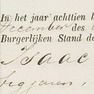 In het jaar achttien h
December des
Burgerlijken Stand de
Isaac